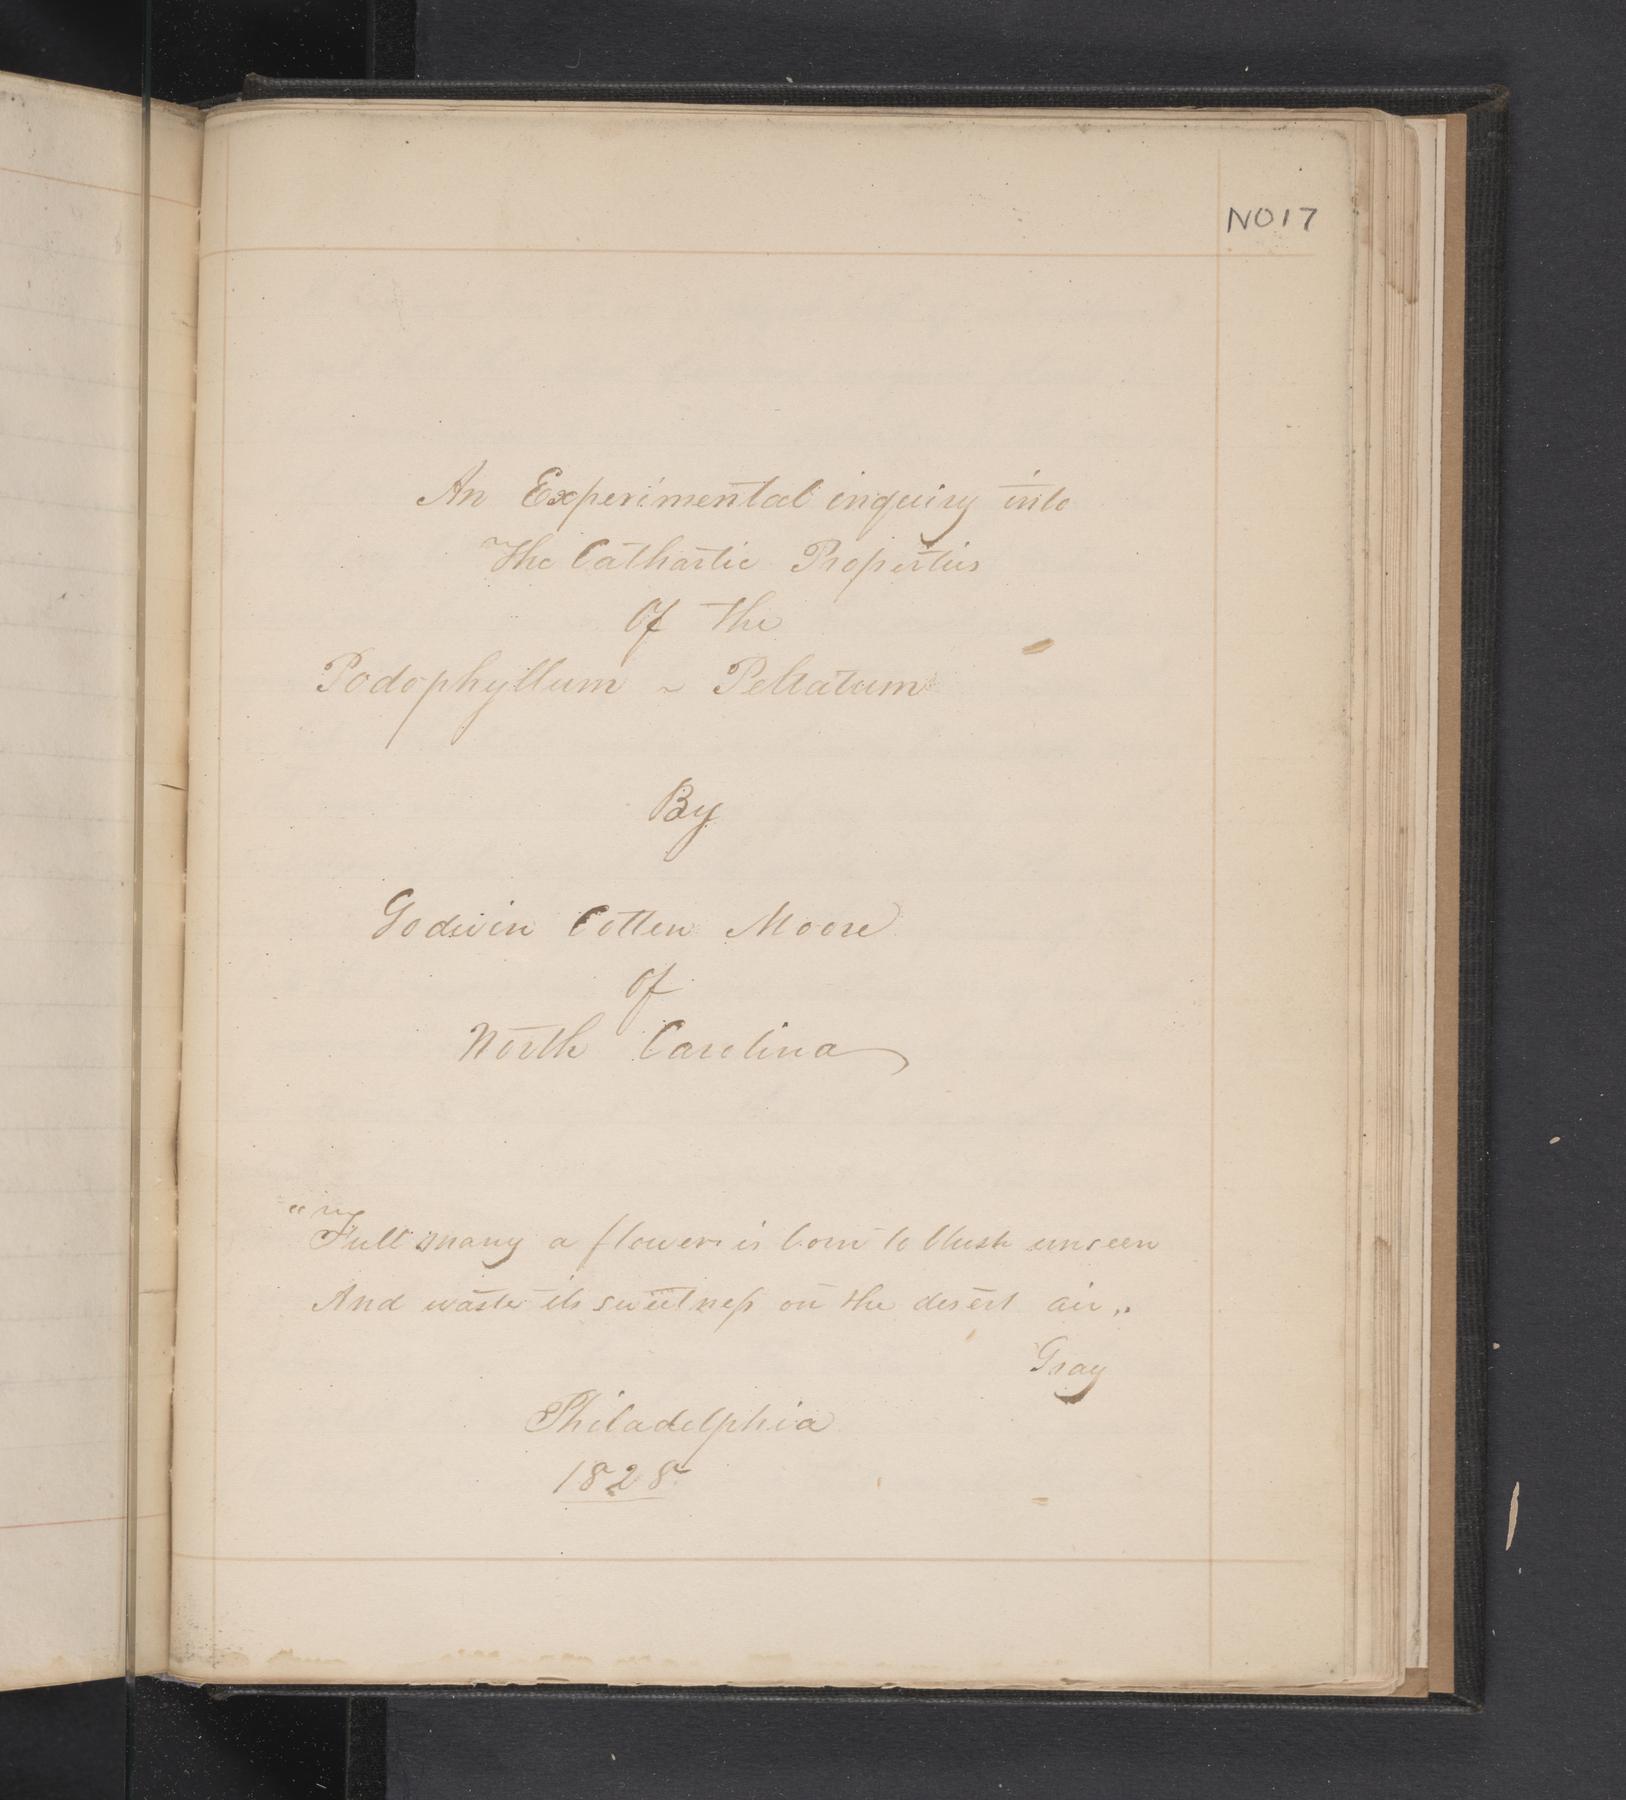 NO17
An Experimental inquiry into
The Cathartic Properties
Of the
Podophyllum ~ Peltatum
By
Godwin Cotten Moore
Of
North Carolina
"Full many a flower is born to blush unseen
And waste its sweetness on the desert air"
Gray
Philadelphia
1828